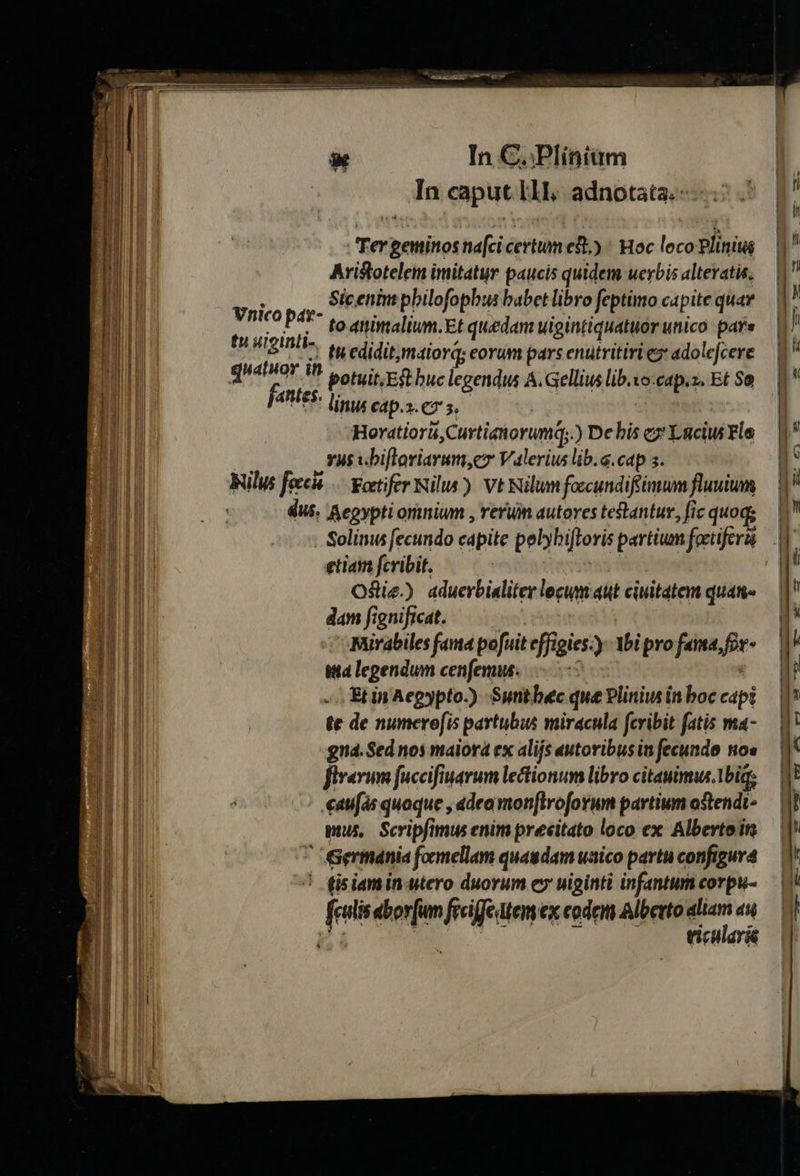 In C. Plinium
In caput III. adnotata.
Tergeminos nasci certum est.) Hoc loco Plinius
Aristotelem imitatur paucis quidem uerbis alteratis.
Sic enim philosophus habet libro septimo capite quar
Vnico par-
to animalium. Et quædam uigintiquatuor unico par=
tu uiginti-
tu edidit, maiorq; eorum pars enutritiri & adolescere
quatuor in
potuit. Est huc legendus A. Gellius lib. 10. cap. 2. Et So
fantes.
linus cap. 2. & 3.
Horatiorũ, Curtianorumq́;.) De his & Lucius Flo
rus 1. historiarum, & Valerius lib. 6. cap 3.
Nilus foecũ
Foetifer Nilus) Vt Nilum foecundissimum fluuium
dus.
Aegypti omnium, rerum autores testantur, sic quoq;
Solinus secundo capite polyhistoris partium foetiferũ
etiam scribit.
Ostiæ.) aduerbialiter locum aut ciuitatem quan=
dam significat.
Mirabiles fama posuit effigies.) Vbi pro fama, for=
ma legendum censemus.
Et in Aegypto.) Sunt hæc quæ Plinius in hoc capi
te de numerosis partubus miracula scribit satis ma-
gna. Sed nos maiora ex alijs autoribus in secundo no=
strarum succisiuarum lectionum libro citauimus. Vbiq́;
causas quoque, adeo monstrosorum partium ostendi=
mus. Scripsimus enim præcitato loco ex Alberto in
Germania foemellam quandam unico partu configura
tis iam in utero duorum & uiginti infantum corpu-
sculis aborsum fecisse. Item ex eodem Alberto aliam au
ricularis